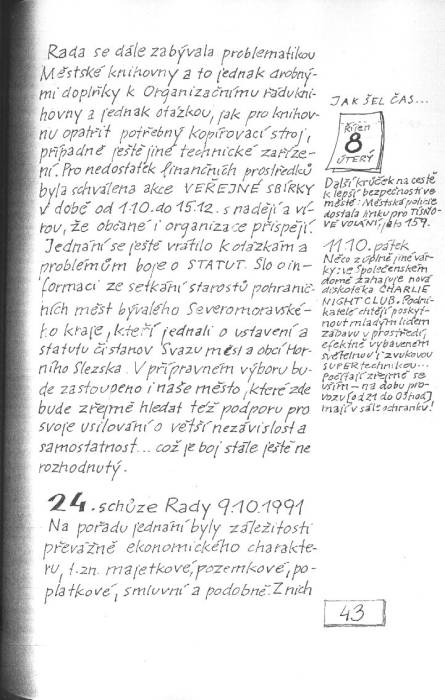 Rada se dále zabývala problematikou
Městské knihovny a to jednak drobný-
mi doplňky k Organizačnímu řádu kni-
hovny a jednak otázkou, jak pro knihov-
nu opatřit potřebný kopírovací stroj,
případně ještě jiné technické zaříze-
ní. Pro nedostatek finančních prostředků
byla schválena akce VEŘEJNÉ SBÍRKY
v době od 1.10. do 15.12. s nadějí a ví-
rou, že občané i organizace přispějí.
Jednání se ještě vrátilo k otázkám a
problémům boje o STATUT. Šlo o in-
formaci ze setkání starostů pohranič-
ních měst bývalého Severomoravské-
ho kraje, kteří jednali o ustavení a
statutu či stanov Svazu měst a obcí Hor-
ního Slezska. V přípravném výboru bu-
de zastoupeno i naše město, které zde
bude zřejmě hledat též podporu pro
svoje usilování o větší nezávislost a
samostatnost... což je boj stále ještě ne
rozhodnutý.
24. schůze Rady 9.10.1991
Na pořadu jednání byly záležitosti
převážně ekonomického charakte-
ru, t.zn. majetkové, pozemkové, po-
platkové, smluvní a podobně. Z nich
JAK ŠEL ČAS...
Říjen
8
ÚTERÝ
Další krůček na cestě
k lepší bezpečnosti ve
městě: Městská policie
dostala linku pro TÍSŇO-
VÉ VOLÁNÍ, je to 159.
11.10. pátek
Něco z úplně jiné vár-
ky: ve Společenském
domě zahajuje nová
diskotéka CHARLIE
NIGHT CLUB. Podni-
katelé chtějí poskyt-
nout mladým lidem
zábavu v prostředí,
efektně vybaveném
světelnou i zvukovou
SUPERtechnikou...
Počítají zřejmě se
vším - na dobu pro-
vozu (od 21 do 03 hod)
mají v sále ochranku!
43